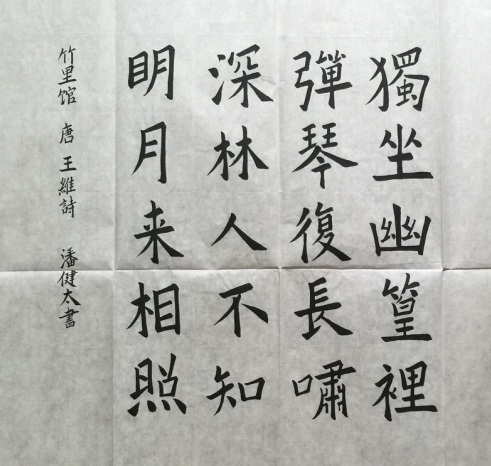 獨坐幽篁裡
彈琴復長嘯
深林人不知
明月来相照
竹里馆 唐 王維詩 潘健太書